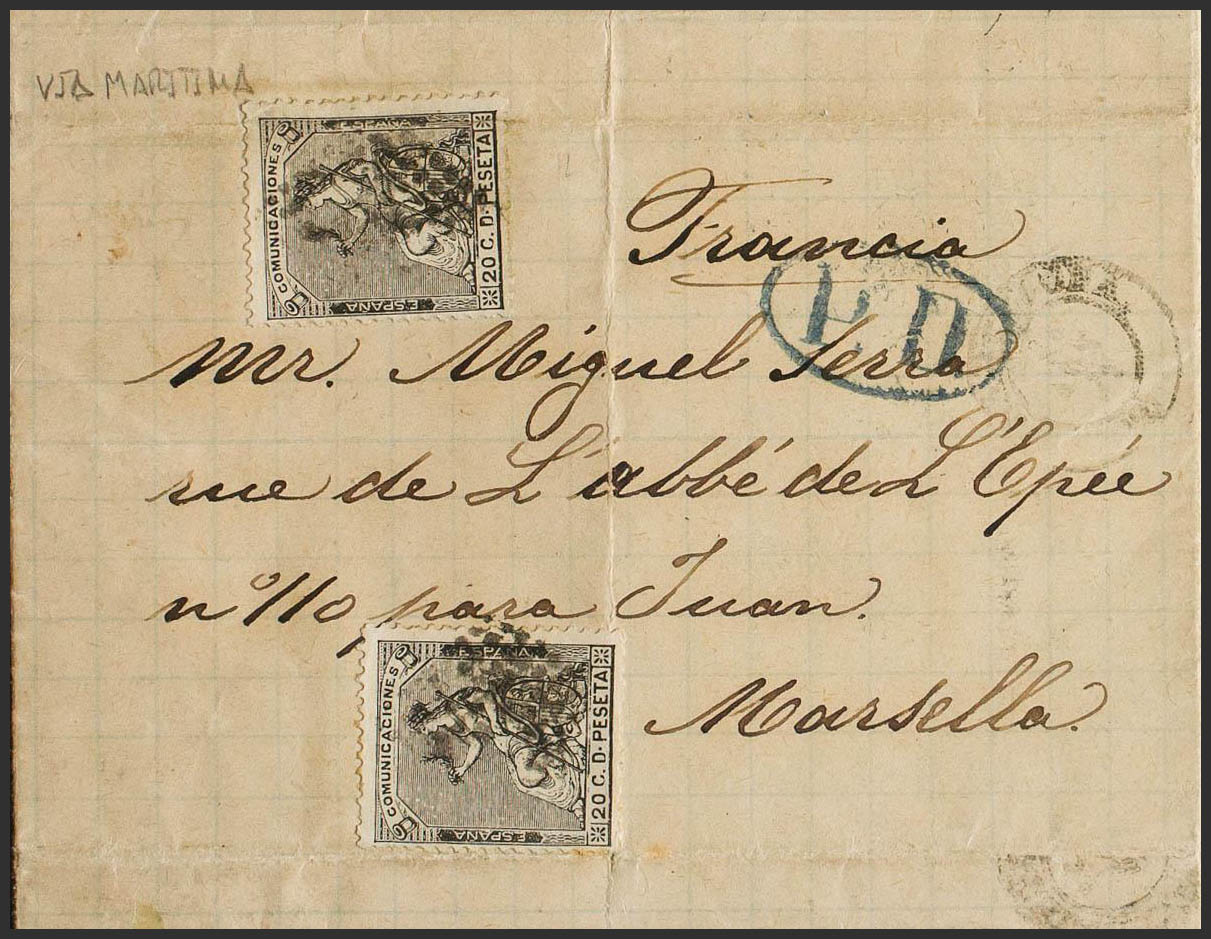 VIA MARITIMA
COMUNICACIONES
ESPAÑA
ESPAÑA
20 C. D. PESETA
Francia
P.D
Mr. Miguel Serra
rue de L'abbé de L'Epée
nº 110 para Juan.
Marsella.
COMUNICACIONES
ESPAÑA
ESPAÑA
20 C. D. PESETA